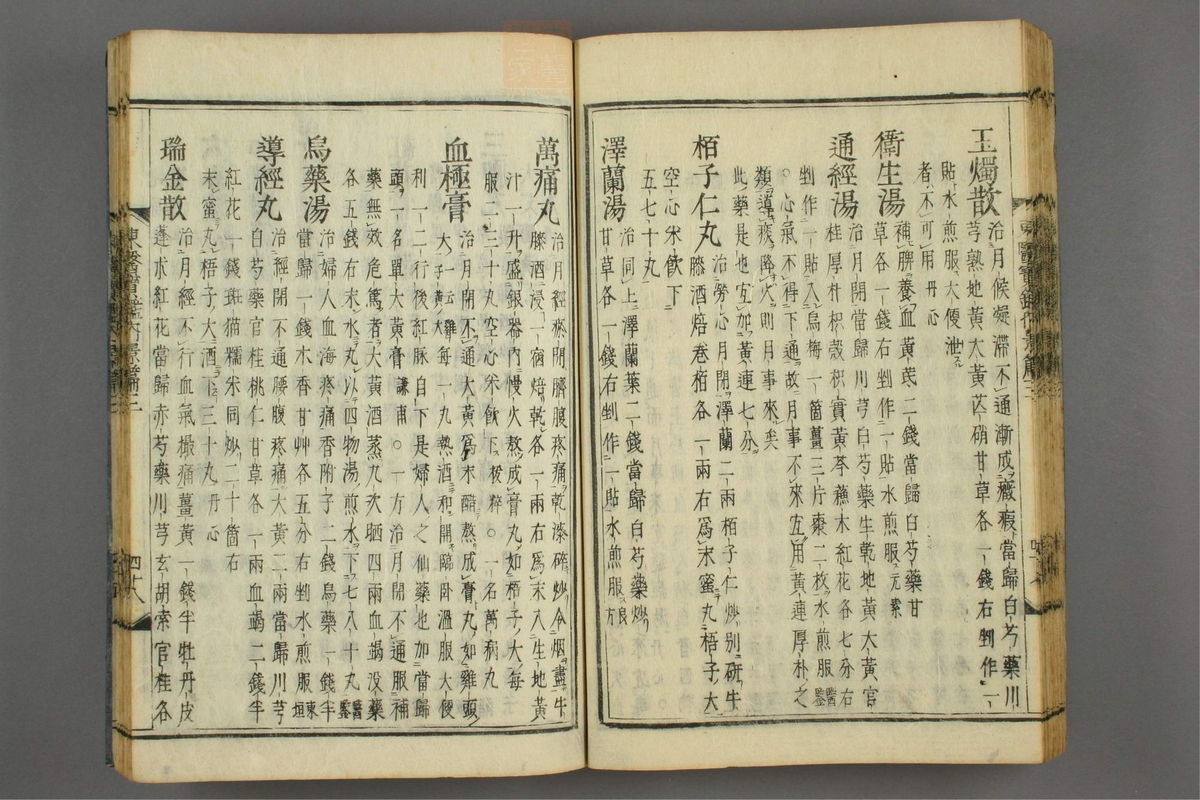 玉燭散 治月候凝滯不通漸成癥瘕當歸白芍藥川
芎熟地黃大黃芒硝甘草各一錢右剉作一
貼水煎服大便泄
者不可用丹心
衛生湯 補脾養血黃芪二錢當歸白芍藥甘
草各一錢右剉作一貼水煎服元素
通經湯 治月閉當歸川芎白芍藥生乾地黃大黃官
桂厚朴枳殼枳實黃芩蘇木紅花各七分右
剉作一貼入烏梅一箇薑三片棗二枚水煎服醫鑒
○心氣不得下通故月事不來宜用黃連厚朴之
類導痰降火則月事來矣
此藥是也宜加黃連七分
栢子仁丸 治勞心月閉澤蘭二兩栢子仁炒別研牛
膝酒焙卷栢各一兩右爲末蜜丸梧子大
空心米飮下
五七十丸
澤蘭湯 治同上澤蘭葉二錢當歸白芍藥炒
甘草各一錢右剉作一貼水煎服良方
萬痛丸 治月經瘀閉臍腹疼痛乾漆碎炒令烟盡牛
膝酒浸一宿焙乾各一兩右爲末入生地黃
汁一升盛銀器內慢火熬成膏丸如梧子大每
服二三十丸空心米飮下拔粹○一名萬病丸
血極膏 治月閉不通大黃爲末醋熬成膏丸如雞頭
大一云雞子黃大每一丸熱酒和開臨卧溫服大便
利一二行後紅脉自下是婦人之仙藥也加當歸
頭一名單大黃膏謙甫○一方治月閉不通服補
藥無效危篤者大黃酒蒸九次晒四兩血竭沒藥
各五錢右末水丸以四物湯煎水下七八十丸醫鑒
烏藥湯 治婦人血海疼痛香附子二錢烏藥一錢半
當歸一錢木香甘艸各五分右剉水煎服東垣
導經丸 治經閉不通腰腹疼痛大黃二兩當歸川芎
白芍藥官桂桃仁甘草各一兩血竭二錢半
紅花一錢斑猫糯米同炒二十箇右
末蜜丸梧子大酒下三十丸丹心
瑞金散 治月經不行血氣撮痛薑黃一錢半牡丹皮
蓬朮紅花當歸赤芍藥川芎玄胡索官桂各
四十八